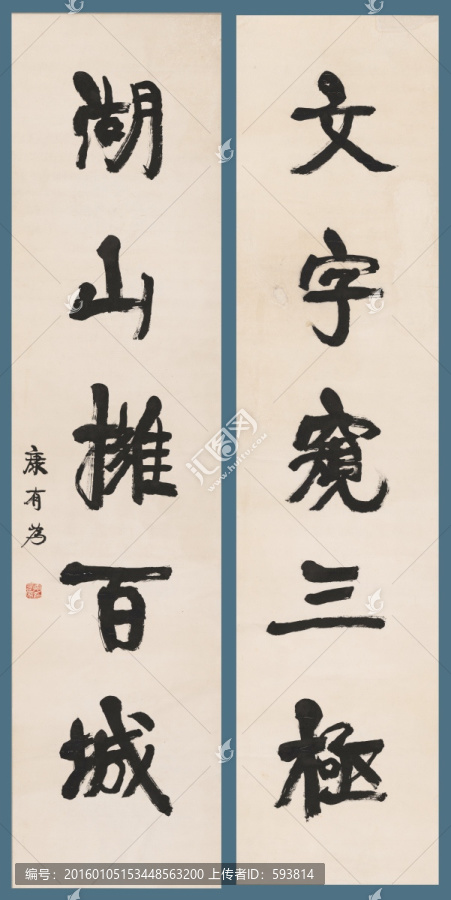 文字窺三極
湖山擁百城
康有為
汇图网
www.huitu.com
编号：20160105153448563200 上传者ID：593814